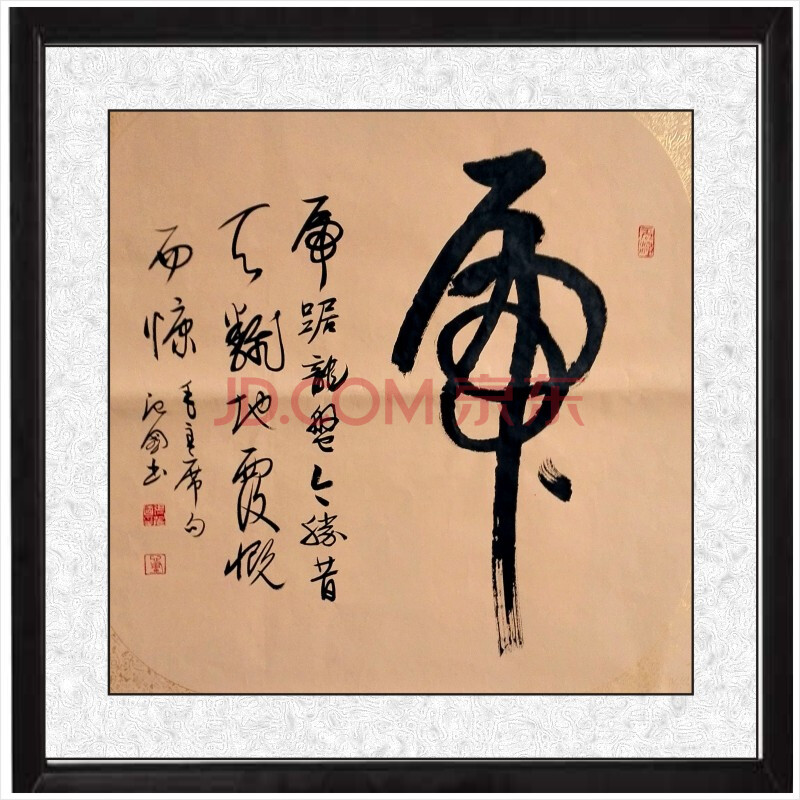 虎
虎踞龍盤今勝昔
天翻地覆慨
而慷
毛主席句
书
JD.COM 京东